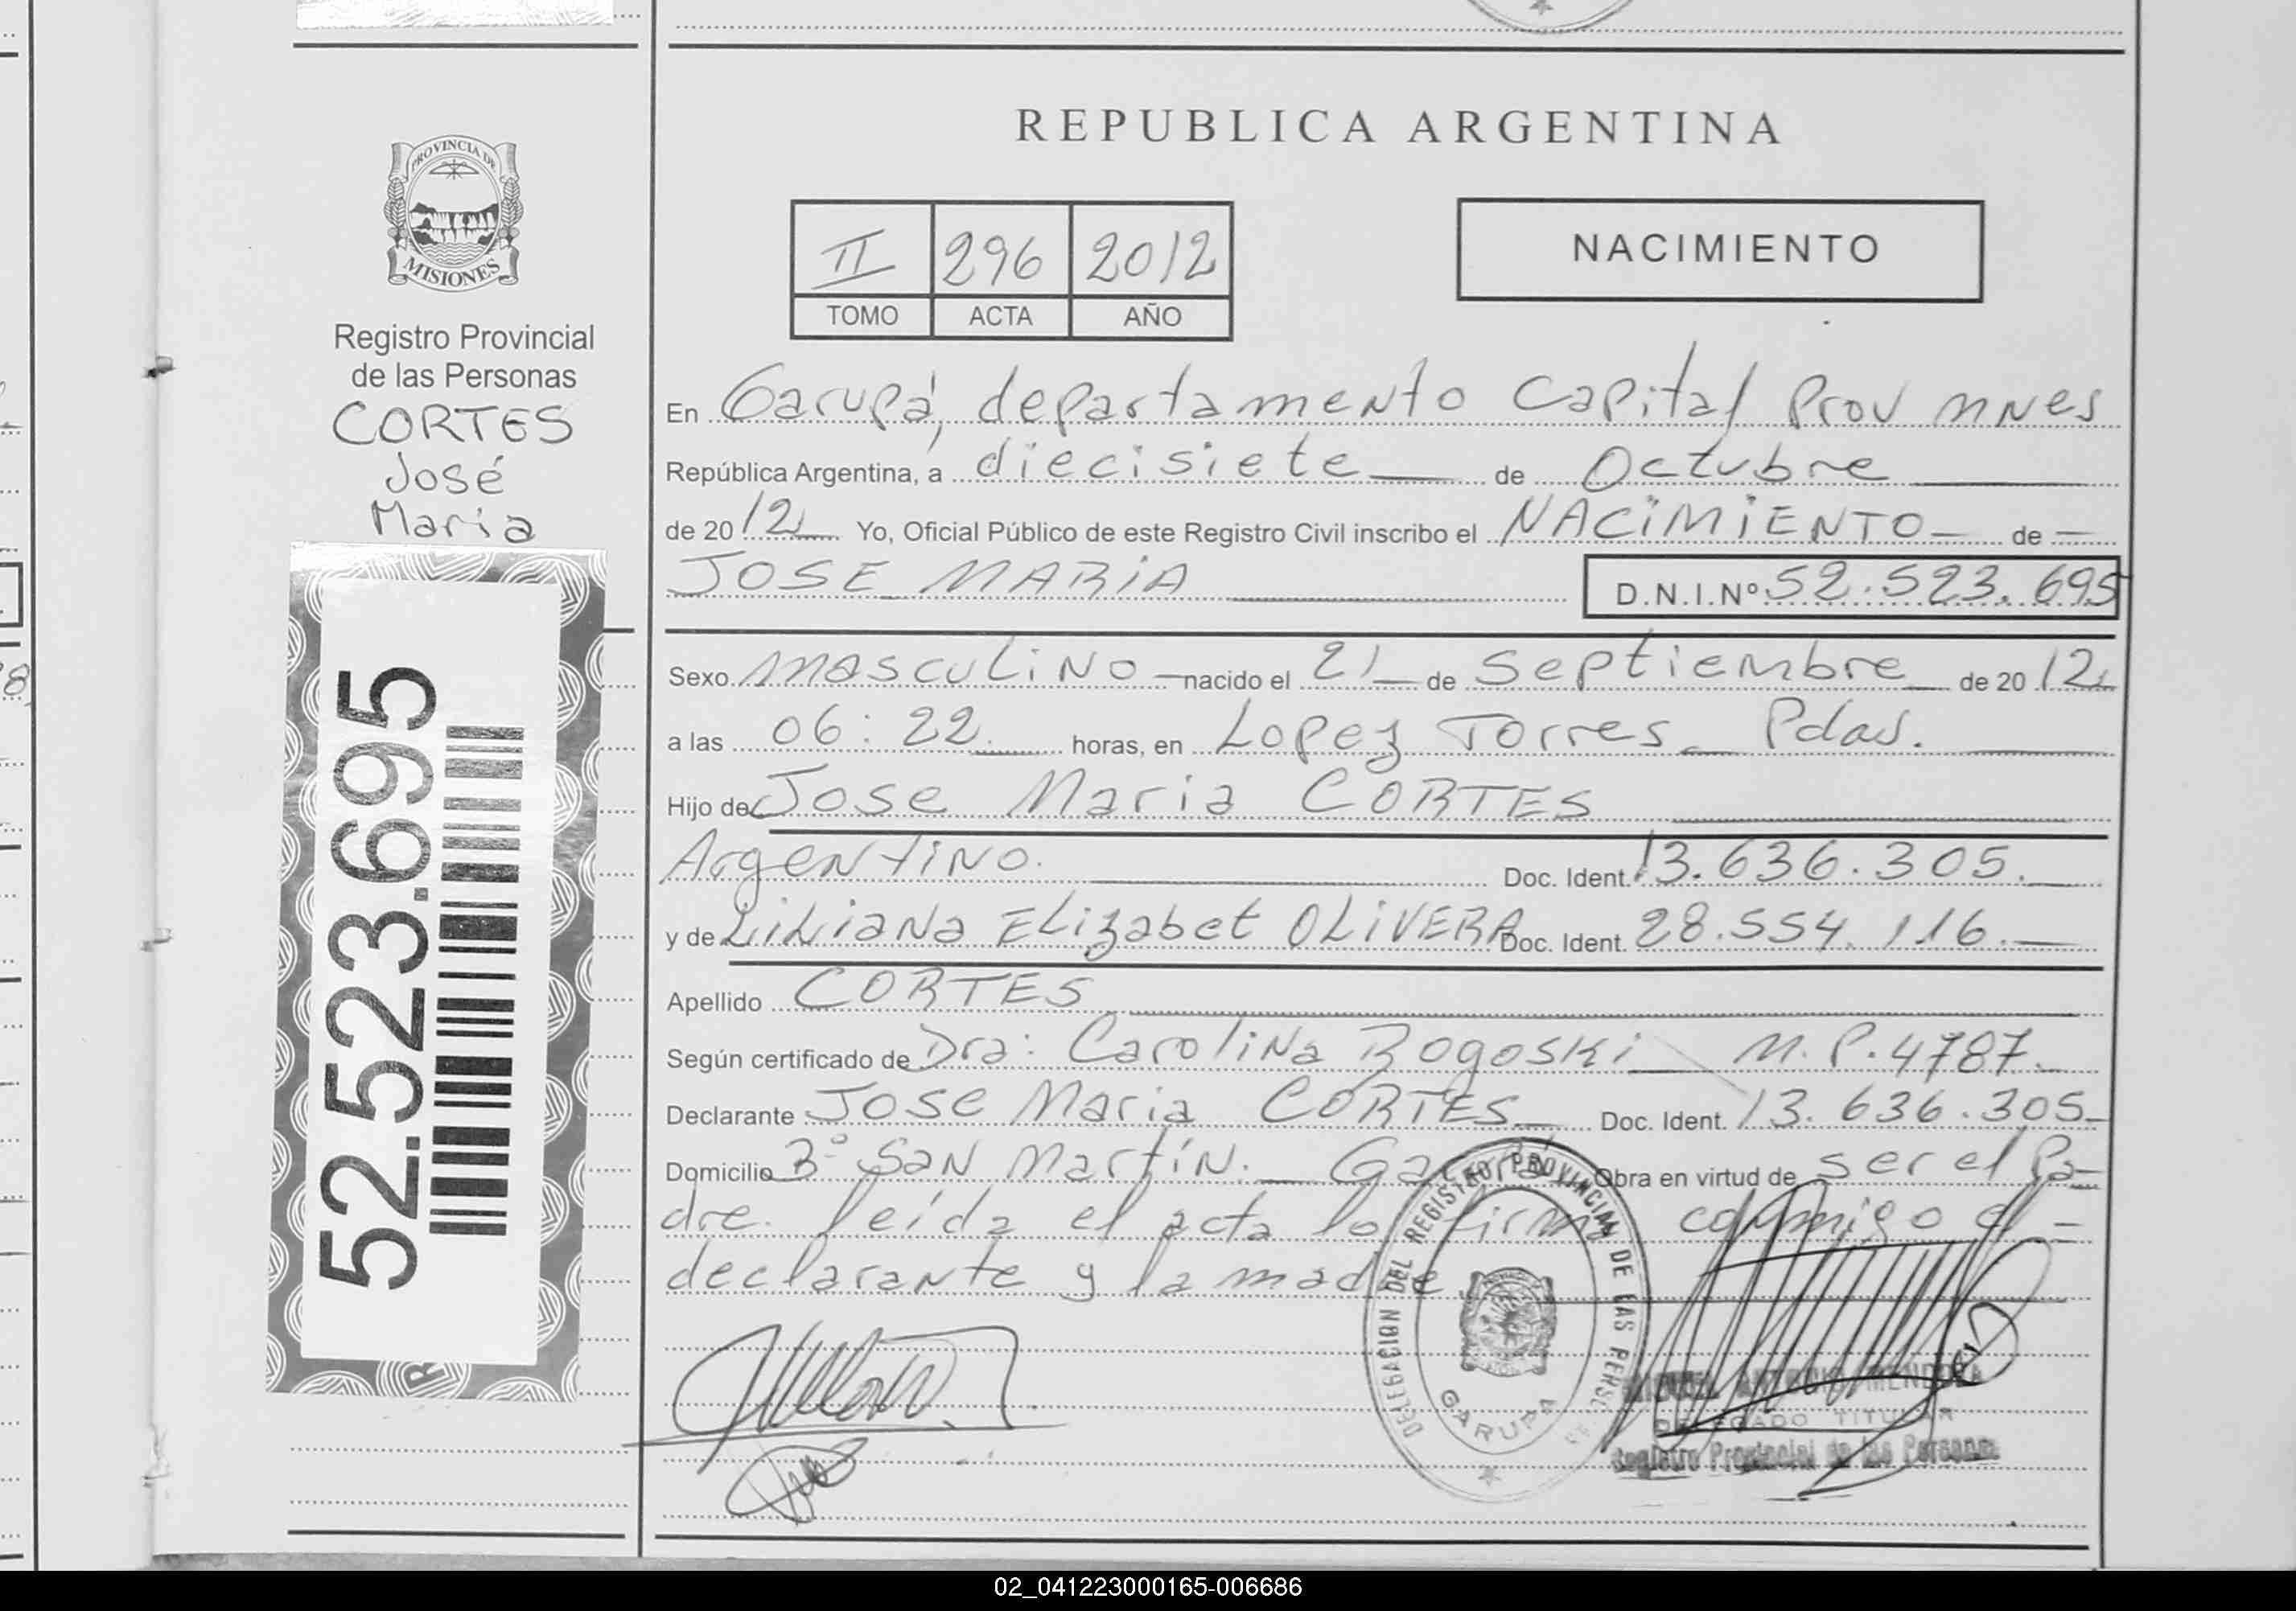 REPUBLICA ARGENTINA
PROVINCIA DE
MISIONES
Registro Provincial
de las Personas
CORTES
José
Maria
52.523.695
II 296 2012
TOMO ACTA AÑO
NACIMIENTO
En Garupá, departamento Capital Prov Mnes
República Argentina, a diecisiete de Octubre
de 2012 Yo, Oficial Público de este Registro Civil inscribo el NACIMIENTO de
JOSE MARIA D.N.I.Nº 52.523.695
Sexo masculino nacido el 21 de Septiembre de 2012
a las 06:22 horas, en Lopez Torres. Pdas.
Hijo de Jose Maria CORTES
Argentino. Doc. Ident. 13.636.305.
y de Liliana Elizabet OLIVERA Doc. Ident. 28.554.116.
Apellido CORTES
Según certificado de Dra: Carolina Rogoski M.P. 4787.
Declarante Jose Maria CORTES Doc. Ident. 13.636.305
Domicilio Bº San Martín. Garupá Obra en virtud de ser el Pa-
dre. leída el acta lo firma conmigo el
declarante y la madre
DELEGACION DEL REGISTRO PROVINCIAL DE LAS PERSONAS
GARUPA
MIGUEL ANTONIO MENDOZA
DELEGADO TITULAR
Registro Provincial de las Personas
02_041223000165-006686